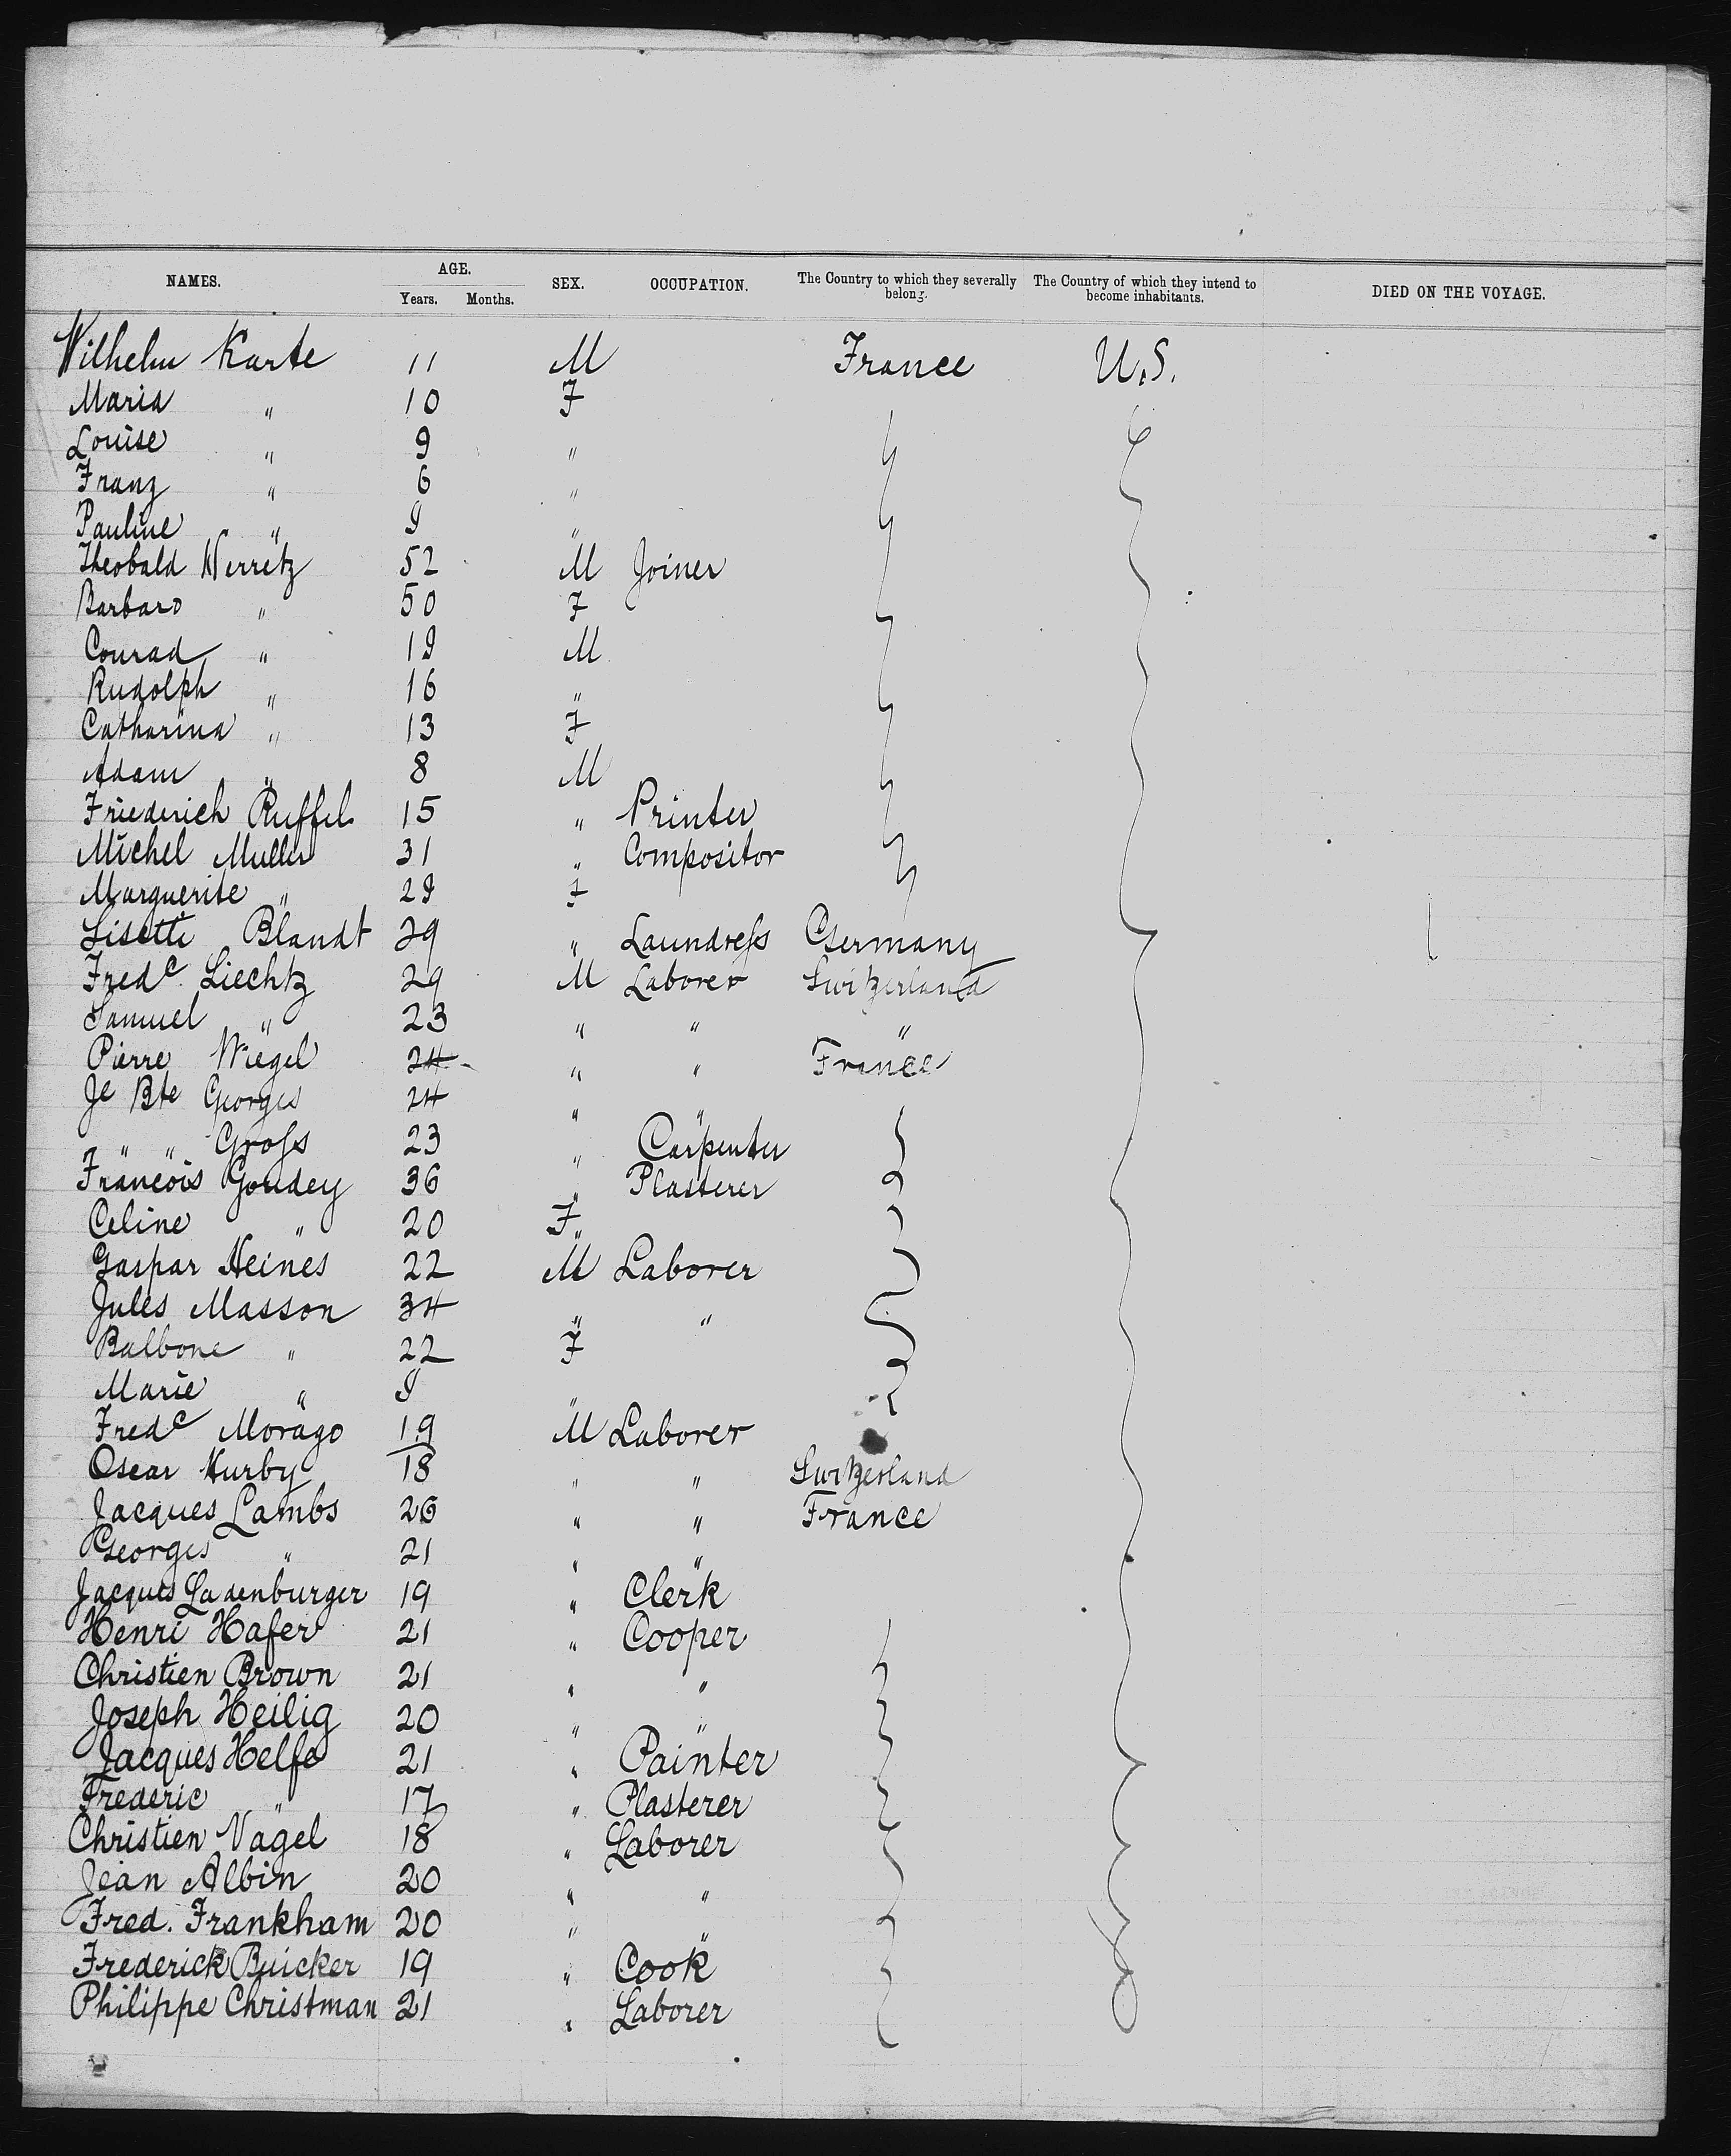 NAMES. AGE. Years. Months. SEX. OCCUPATION. The Country to which they severally belong. The Country of which they intend to become inhabitants. DIED ON THE VOYAGE.
Wilhelm Karte 11 M France U.S.
Maria " 10 F
Louise " 9 "
Franz " 6 "
Pauline " 9 "
Theobald Werretz 52 M Joiner
Barbara " 50 F
Conrad " 19 M
Rudolph " 16 "
Catharina " 13 F
Adam " 8 M
Friederich Ruffel 15 " Printer
Michel Muller 31 " Compositor
Marguerite " 29 F
Lisette Blandt 29 " Laundress Germany
Fredc Liechtz 29 M Laborer Switzerland
Samuel " 23 " " "
Pierre Wiegel 24 " " France
Je Bte Georges 24 " "
" " Gross 23 " Carpenter
Francois Goudey 36 " Plasterer
Celine " 20 F
Gaspar Heines 22 M Laborer
Jules Masson 34 " "
Balbone " 22 F
Marie " 9 "
Fredc Morago 19 M Laborer
Oscar Hurby 18 " " Switzerland
Jacques Lambs 26 " " France
Georges " 21 " "
Jacques Ladenburger 19 " Clerk
Henri Hafer 21 " Cooper
Christien Brown 21 " "
Joseph Heilig 20 " "
Jacques Helfe 21 " Painter
Frederic " 17 " Plasterer
Christien Vagel 18 " Laborer
Jean Albin 20 " "
Fred. Frankham 20 " "
Frederick Buicker 19 " Cook
Philippe Christman 21 " Laborer